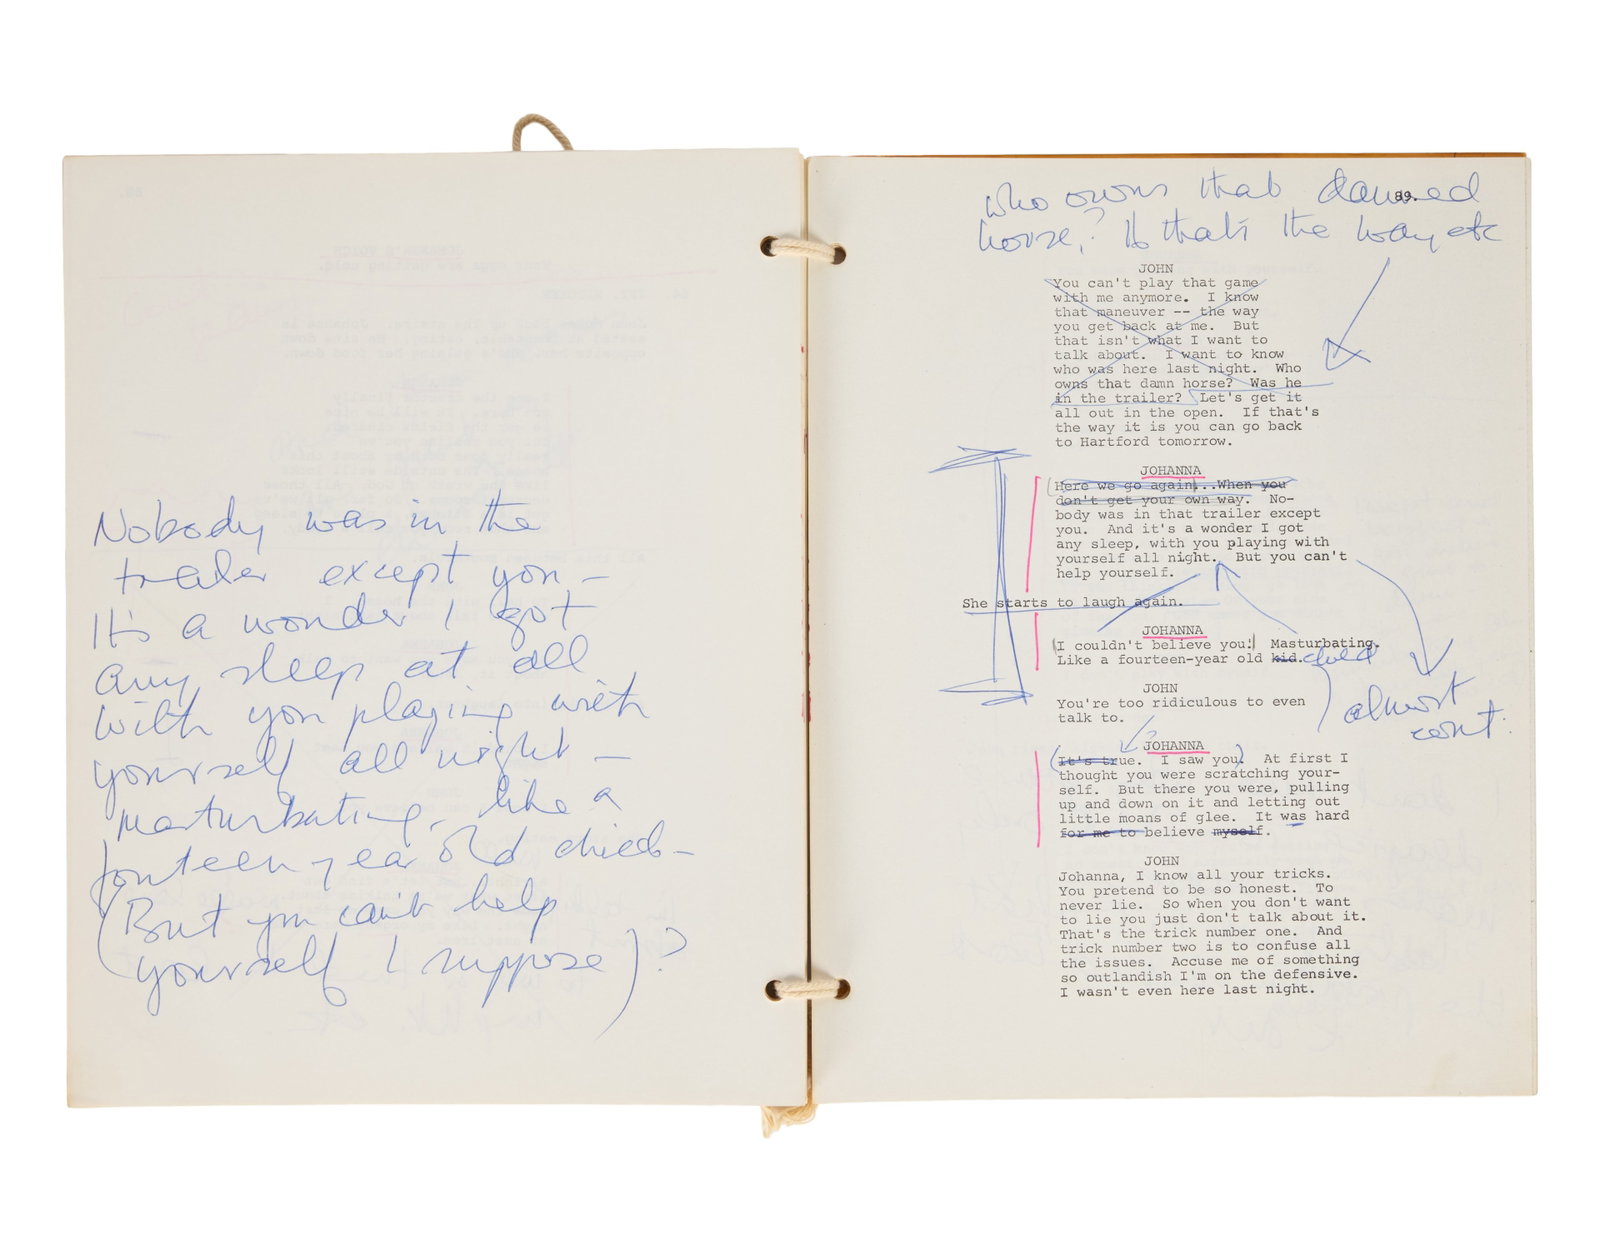 Nobody was in the
trailer except you –
It's a wonder I got
any sleep at all
with you playing with
yourself all night –
masturbating, like a
fourteen year old child –
(But you can't help
yourself I suppose)?
who owns that damned
horse? If that's the way etc
89.
JOHN
You can't play that game
with me anymore. I know
that maneuver -- the way
you get back at me. But
that isn't what I want to
talk about. I want to know
who was here last night. Who
owns that damn horse? Was he
in the trailer? Let's get it
all out in the open. If that's
the way it is you can go back
to Hartford tomorrow.
JOHANNA
Here we go again...When you
don't get your own way. No-
body was in that trailer except
you. And it's a wonder I got
any sleep, with you playing with
yourself all night. But you can't
help yourself.
She starts to laugh again.
JOHANNA
I couldn't believe you! Masturbating.
Like a fourteen-year old kid. child
JOHN
You're too ridiculous to even
talk to.
almost
cont.
JOHANNA
It's true. I saw you. At first I
thought you were scratching your-
self. But there you were, pulling
up and down on it and letting out
little moans of glee. It was hard
for me to believe myself.
JOHN
Johanna, I know all your tricks.
You pretend to be so honest. To
never lie. So when you don't want
to lie you just don't talk about it.
That's the trick number one. And
trick number two is to confuse all
the issues. Accuse me of something
so outlandish I'm on the defensive.
I wasn't even here last night.